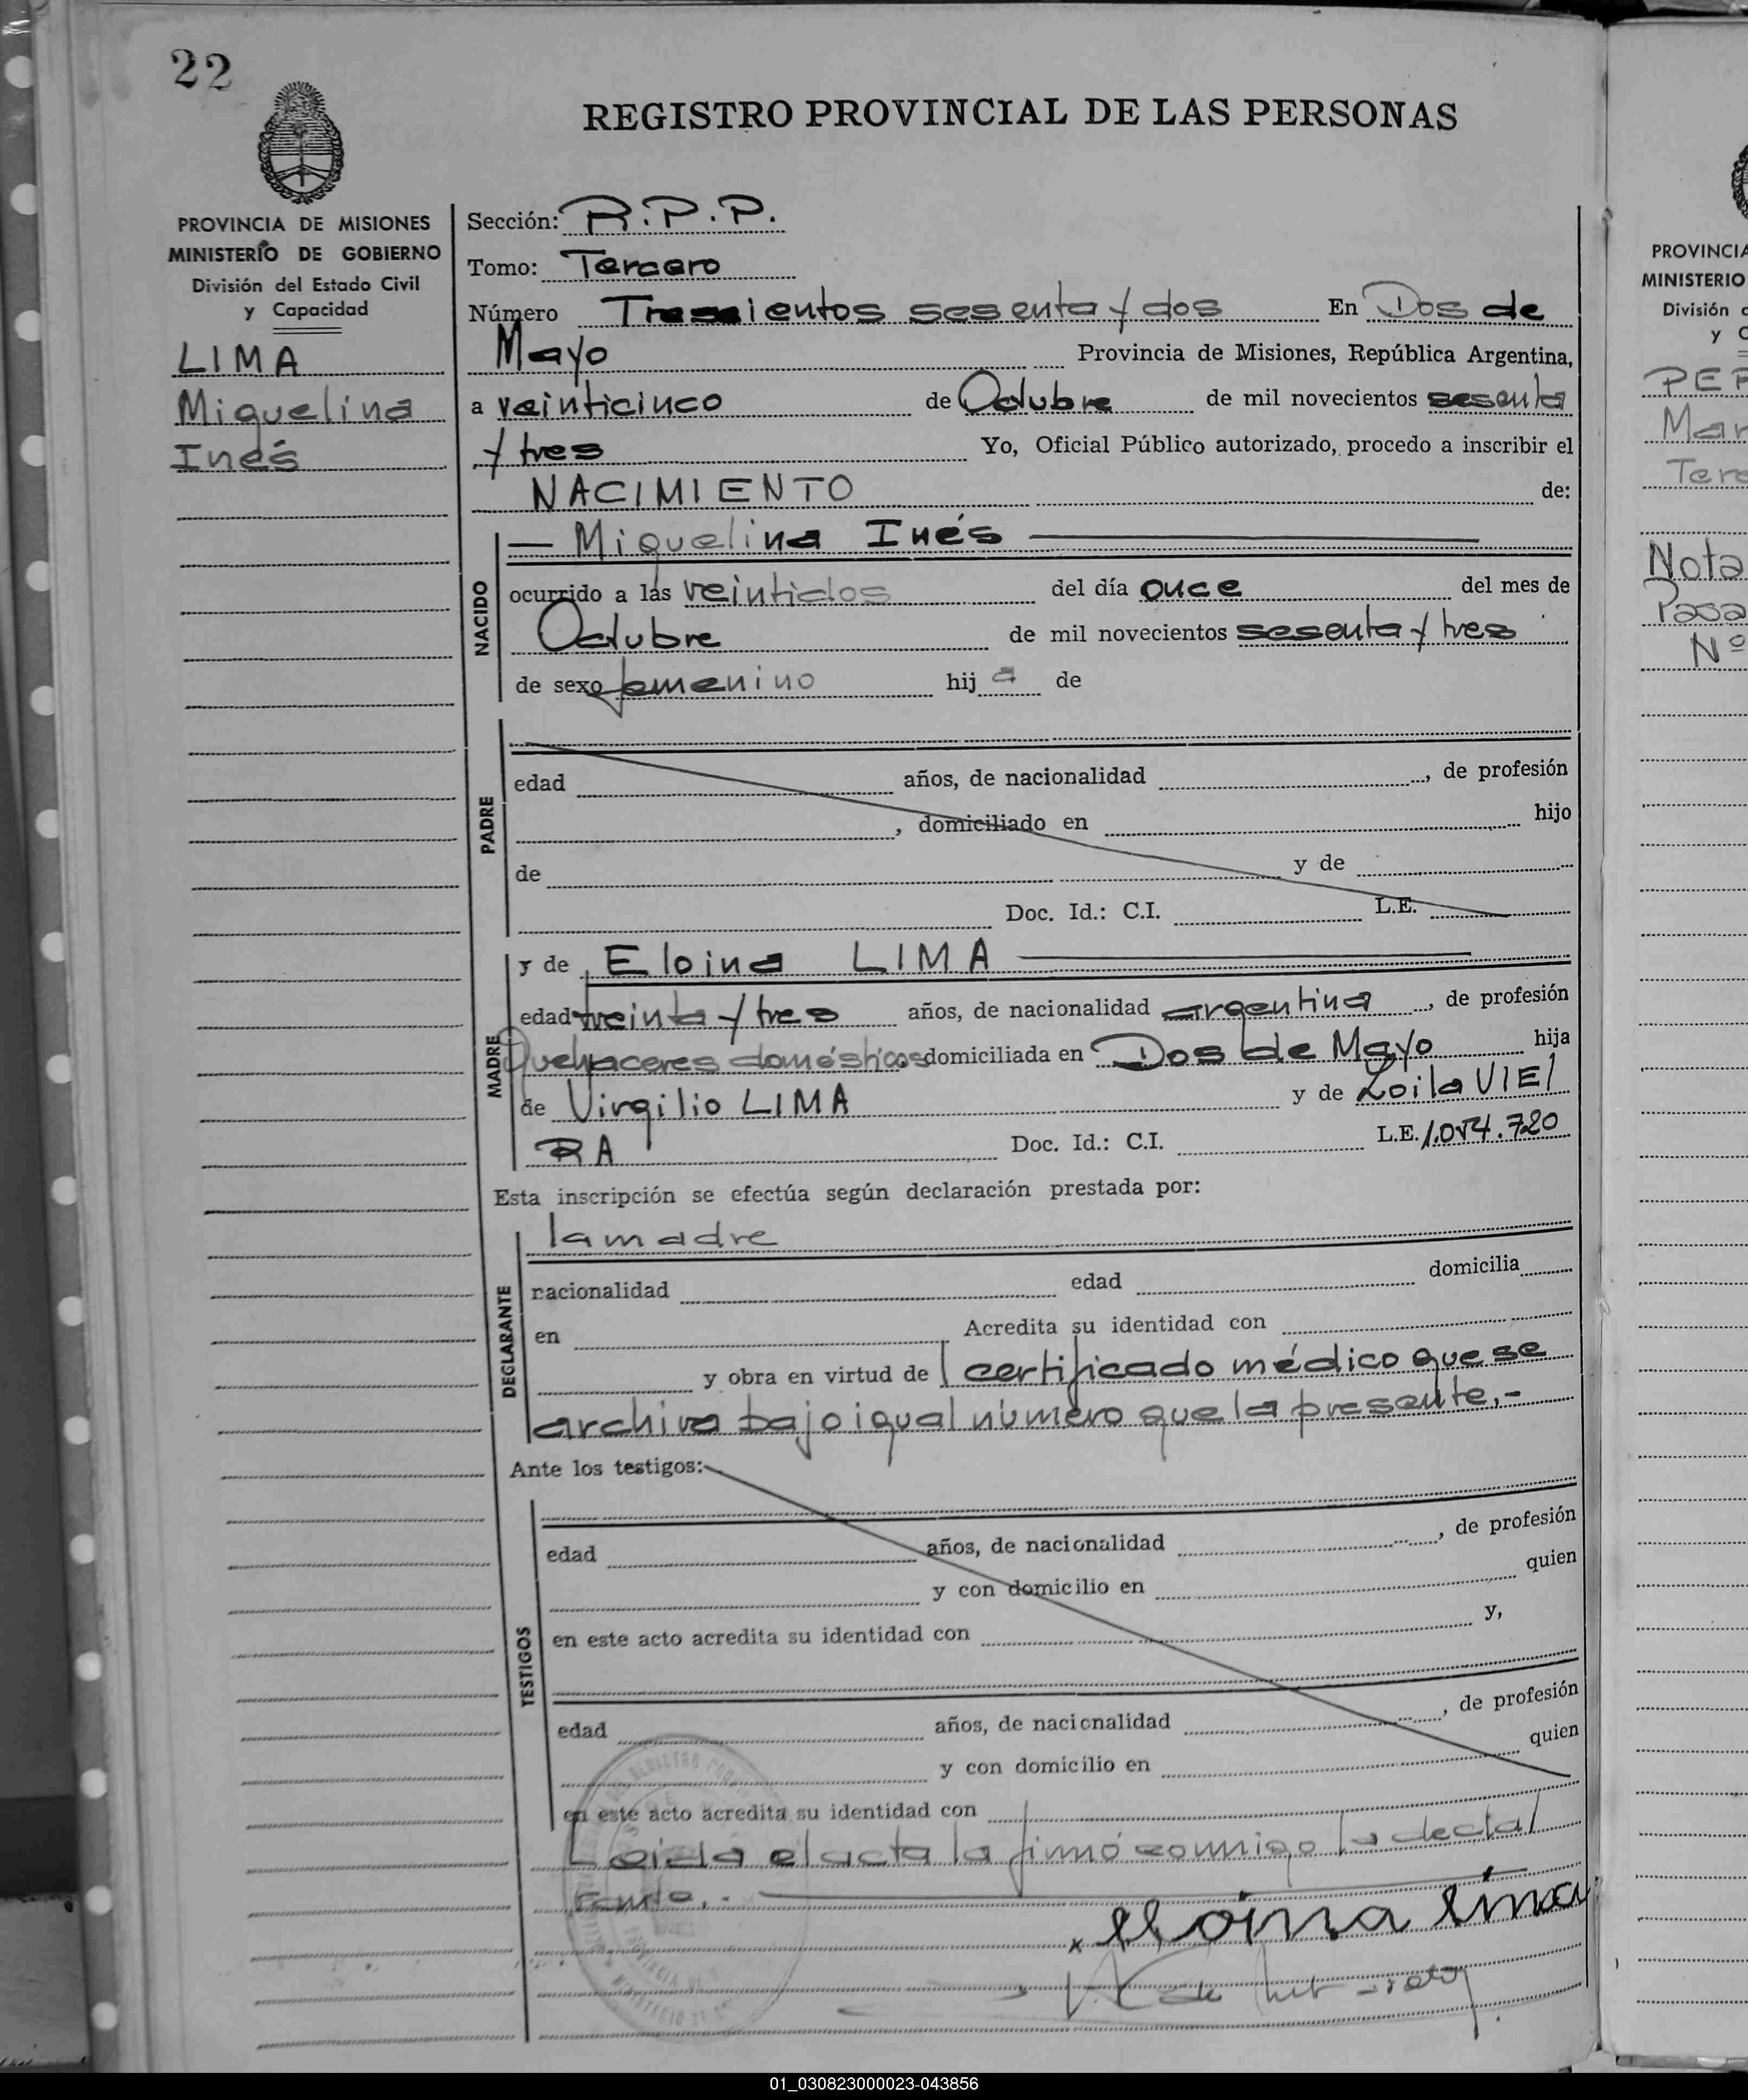 22
REGISTRO PROVINCIAL DE LAS PERSONAS
PROVINCIA DE MISIONES
MINISTERIO DE GOBIERNO
División del Estado Civil
y Capacidad
LIMA
Miguelina
Inés
Sección: R.P.P.
Tomo: Tercero
Número Trescientos sesenta y dos En Dos de
Mayo Provincia de Misiones, República Argentina,
a veinticinco de Octubre de mil novecientos sesenta
y tres Yo, Oficial Público autorizado, procedo a inscribir el
NACIMIENTO de:
NACIDO
— Miguelina Inés —
ocurrido a las veintidos del día once del mes de
Octubre de mil novecientos sesenta y tres
de sexo femenino hij a de
PADRE
edad años, de nacionalidad , de profesión
, domiciliado en hijo
de y de
Doc. Id.: C.I. L.E.
MADRE
y de Eloina LIMA —
edad treinta y tres años, de nacionalidad argentina , de profesión
Quehaceres domésticos domiciliada en Dos de Mayo hija
de Virgilio LIMA y de Zoila VIEI
RA Doc. Id.: C.I. L.E. 1.054.720
Esta inscripción se efectúa según declaración prestada por:
DECLARANTE
la madre
nacionalidad edad domicilia
en Acredita su identidad con
y obra en virtud de certificado médico que se
archiva bajo igual número que la presente.-
Ante los testigos:
TESTIGOS
edad años, de nacionalidad , de profesión
y con domicilio en quien
en este acto acredita su identidad con y,
edad años, de nacionalidad , de profesión
y con domicilio en quien
en este acto acredita su identidad con
Leida el acta la firmó conmigo la decla
rante.-
x Eloina Lima
PROVINCIA
MINISTERIO
División
y
PER
Mar
Tere
Nota
Pasa
Nº
01_030823000023-043856